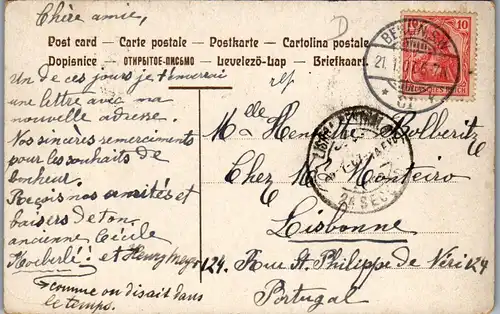 Chère amie,
Post card – Carte postale – Postkarte – Cartolina postale
Dopisnice – ОТКРЫТОЕ ПИСЬМО – Levelező-Lap – Briefkaart
Un de ces jours je t'enverrai
une lettre avec ma
nouvelle adresse.
Nos sincères remerciments
pour les souhaits de
bonheur.
Reçois nos amitiés et
baisers de ton
ancienne Cécile
Koeberlé+ et Henry
+ comme on disait dans
le temps.
10
BERLIN S.W.
21.1.
DEUTSCHES REICH
LISBOA CENTRAL
2A SECÇÃO
Mlle Henriette Holberitz
Chez M Monteiro
Lisbonne
124. Rue St. Philippe de Néri 124
Portugal